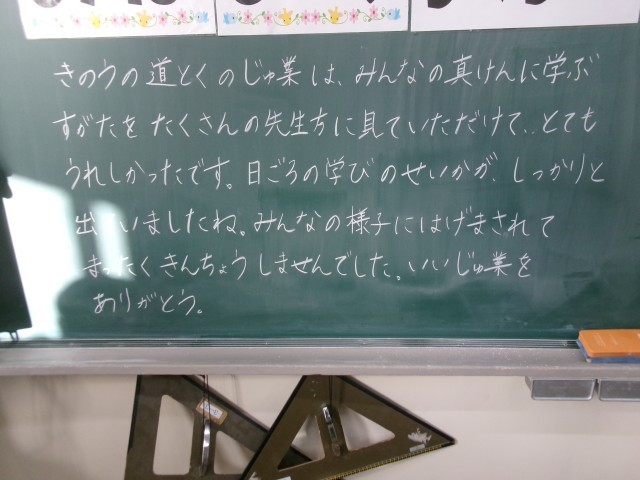 きのうの道とくのじゅ業は、みんなの真けんに学ぶ
すがたをたくさんの先生方に見ていただけて、とても
うれしかったです。日ごろの学びのせいかが、しっかりと
出ていましたね。みんなの様子にはげまされて
まったくきんちょうしませんでした。いいじゅ業を
ありがとう。